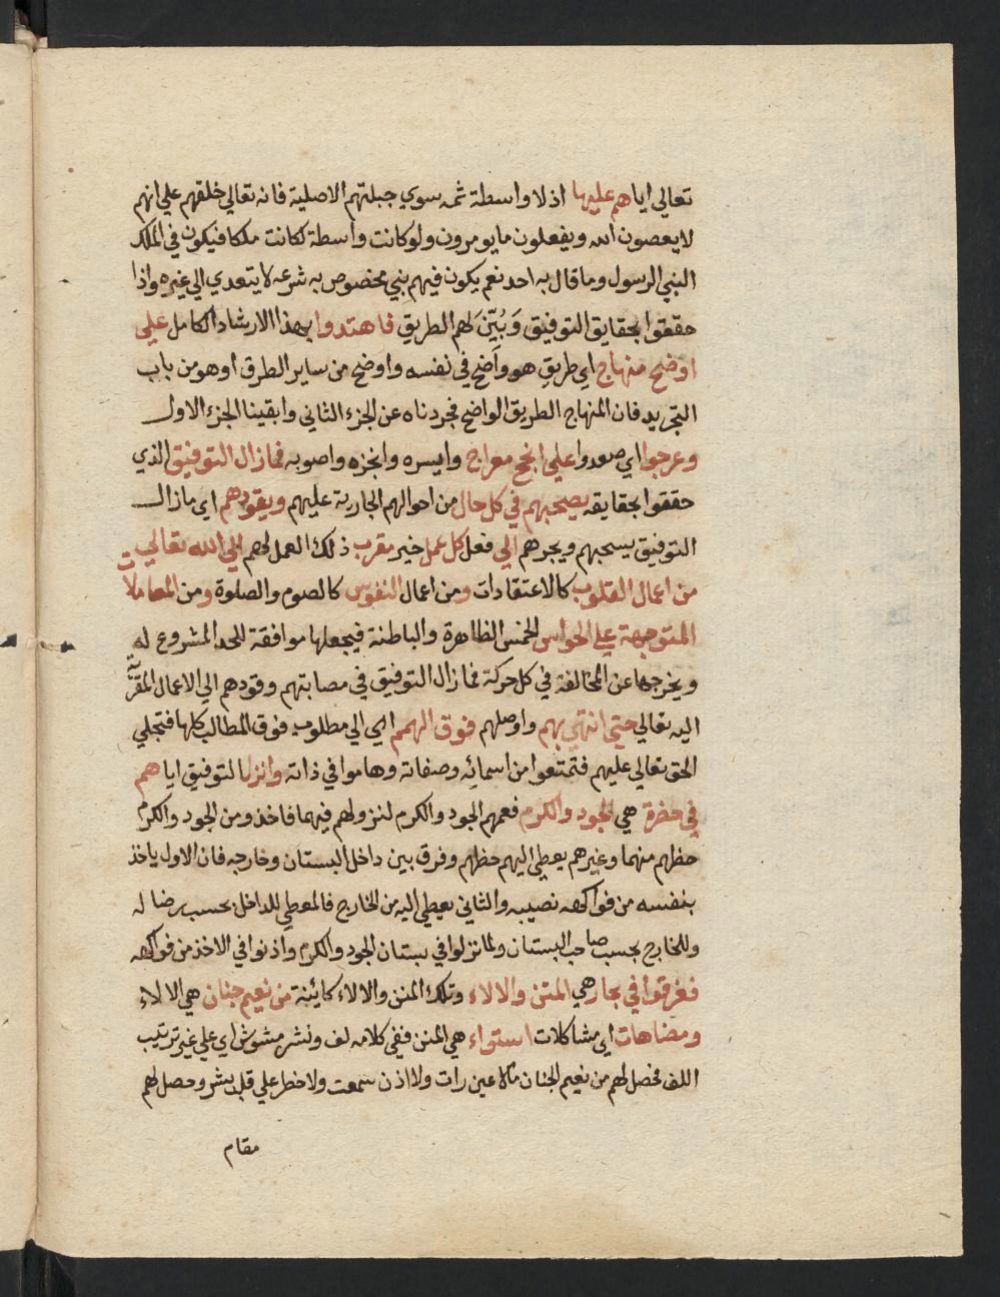 تعالى اياهم عليها اذلا واسطة ثمه سوي جبلتهم الاصلية فانه تعالي خلقهم علي انهم
لايعصون الله ويفعلون مايومرون ولوكانت واسطة لكانت ملكا فيكون في الملك
النبي الرسول وماقال به احد نعم يكون فيهم نبي مخصوص به شرعه لايتعدي الي غيره واذا
حققوا بحقايق التوفيق وَبُيّنَ لهم الطريق فاهتدوا بهذا الارشاد الكامل علي
اوضح منهاج اي طريق هو واضح في نفسه واوضح من ساير الطرق اوهو من باب
التجريد فان المنهاج الطريق الواضح فجردناه عن الجزء الثاني وابقينا الجزء الاول
وعرجوا اي صعدوا علي انجح معراج وايسره وانجزه واصوبه فمازال التوفيق الذي
حققوا بحقايقه يصحبهم في كل حال من احوالهم الجارية عليهم ويقودهم اي مازال
التوفيق يسحبهم ويجرهم الي فعل كل عمل خير مقرب ذلك العمل لهم الي الله تعالي
من اعمال القلوب كالاعتقادات ومن اعمال النفوس كالصوم والصلوة ومن المعاملات
المتوجهة علي الحواس الخمس الظاهرة والباطنة فيجعلها موافقة للحد المشروع له
ويخرجها عن المخالفة في كل حركة فمازال التوفيق في مصابتهم وقودهم الي الاعمال المقربة
اليه تعالي حتي انتهي بهم واوصلهم فوق الهمم اي الي مطلوب فوق المطالب كلها فتجلي
الحق تعالي عليهم فتمتعوا من اسمائه وصفاته وهاموا في ذاته وانزل التوفيق اياهم
في حضرة هي الجود والكرم فعمهم الجود والكرم لنزولهم فيهما فاخذو من الجود والكرم
حظهم منهما وغيرهم يعطي اليهم حظهم وفرق بين داخل البستان وخارجه فان الاول ياخذ
بنفسه من فواكهه نصيبه والثاني يعطي اليه من الخارج فالمعطي للداخل بحسب رضا له
وللخارج بحسب صاحب البستان ولما نزلوا في بستان الجود والكرم واذنوا في الاخذ من فواكهه
فغرقوا في بحار هي المنن والالاء وتلك المنن والالاء كاينة من نعيم جنان هي الالاء
ومضاهات اي مشاكلات استواء هي المنن ففي كلامه لف ونشر مشوش اي علي غير ترتيب
اللف فحصل لهم من نعيم الجنان مالا عين رات ولا اذن سمعت ولا خطر علي قلب بشر وحصل لهم
مقام